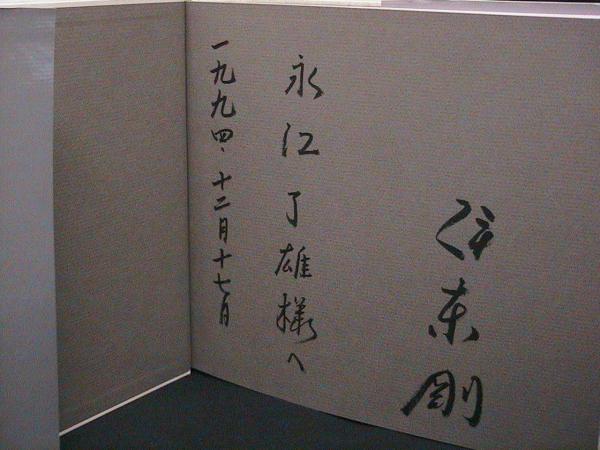 伊東剛
永江了雄様へ
一九九四、十二月十七日